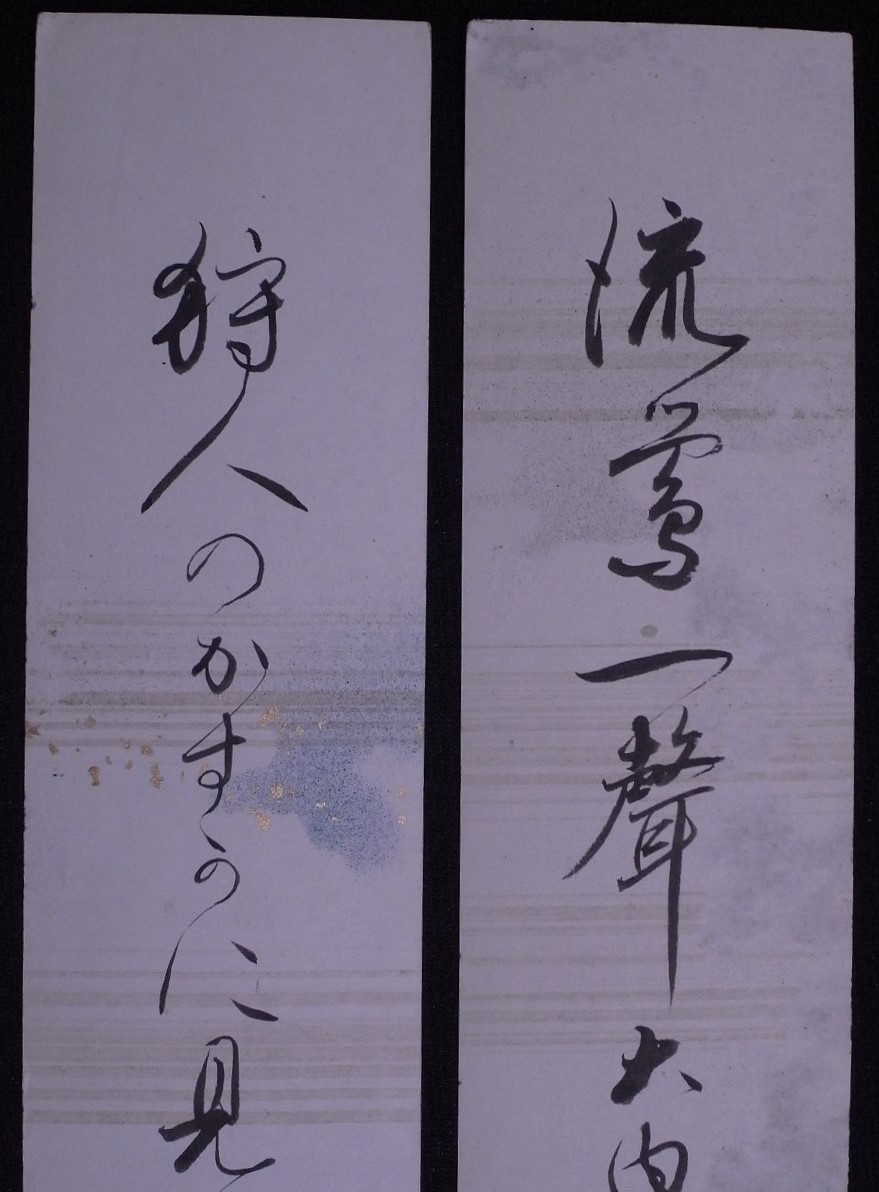 流鶯一聲大内
狩人のかすかに見